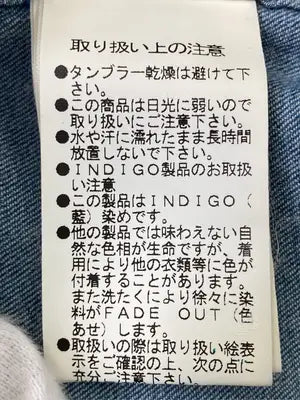 取り扱い上の注意
●タンブラー乾燥は避けて下
さい。
●この商品は日光に弱いので
取り扱いにご注意下さい。
●水や汗に濡れたまま長時間
放置しないで下さい。
●ＩＮＤＩＧＯ製品のお取扱
い注意
●この製品はＩＮＤＩＧＯ（
藍）染めです。
●他の製品では味わえない自
然な色相が生命ですが、着
用により他の衣類等に色が
付着することがあります。
また洗たくにより徐々に染
料がＦＡＤＥ ＯＵＴ（色
あせ）します。
●取扱いの際は取り扱い絵表
示をご確認の上、次の点に
充分ご注意下さい。